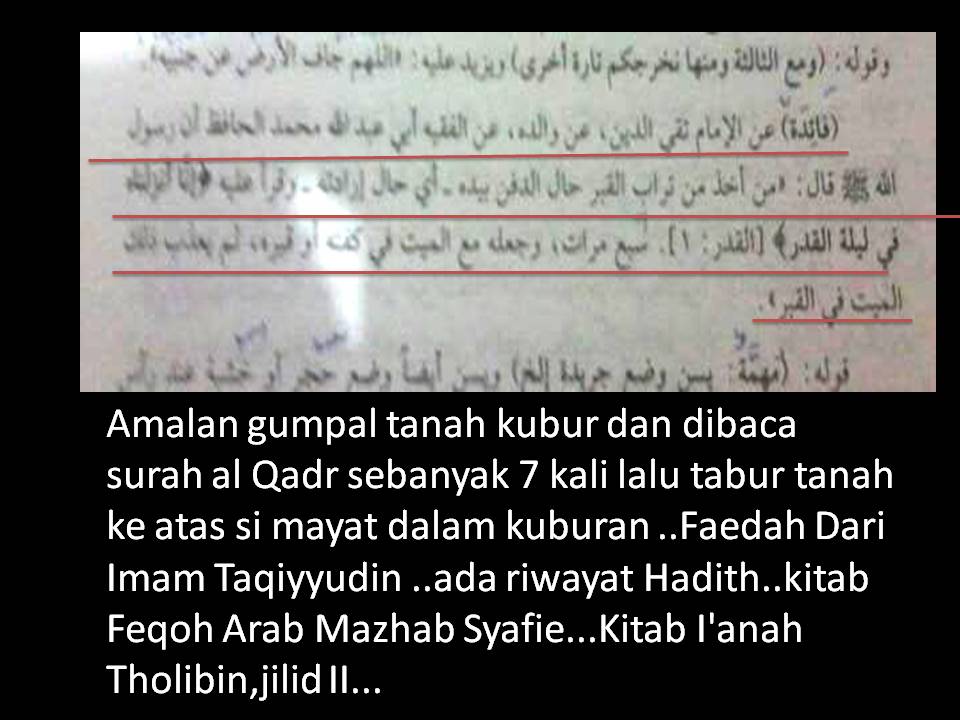 وقوله: (ومع الثالثة ومنها نخرجكم تارة أخرى) ويزيد عليه: «اللهم جاف الأرض عن جنبيه».
(فائدة) عن الإمام تقي الدين، عن والده، عن الفقيه أبي عبد الله محمد الحافظ أن رسول
الله ﷺ قال: «من أخذ من تراب القبر حال الدفن بيده ـ أي حال إرادته ـ وقرأ عليه ﴿إنا أنزلناه
في ليلة القدر﴾ [القدر: ١]. سبع مرات، وجعله مع الميت في كفنه أو قبره، لم يعذب ذلك
الميت في القبر».
قوله: (مهمة: يسن وضع جريدة إلخ) ويسن أيضاً وضع حجر أو خشبة عند رأس
Amalan gumpal tanah kubur dan dibaca
surah al Qadr sebanyak 7 kali lalu tabur tanah
ke atas si mayat dalam kuburan ..Faedah Dari
Imam Taqiyyudin ..ada riwayat Hadith..kitab
Feqoh Arab Mazhab Syafie...Kitab I'anah
Tholibin,jilid II...